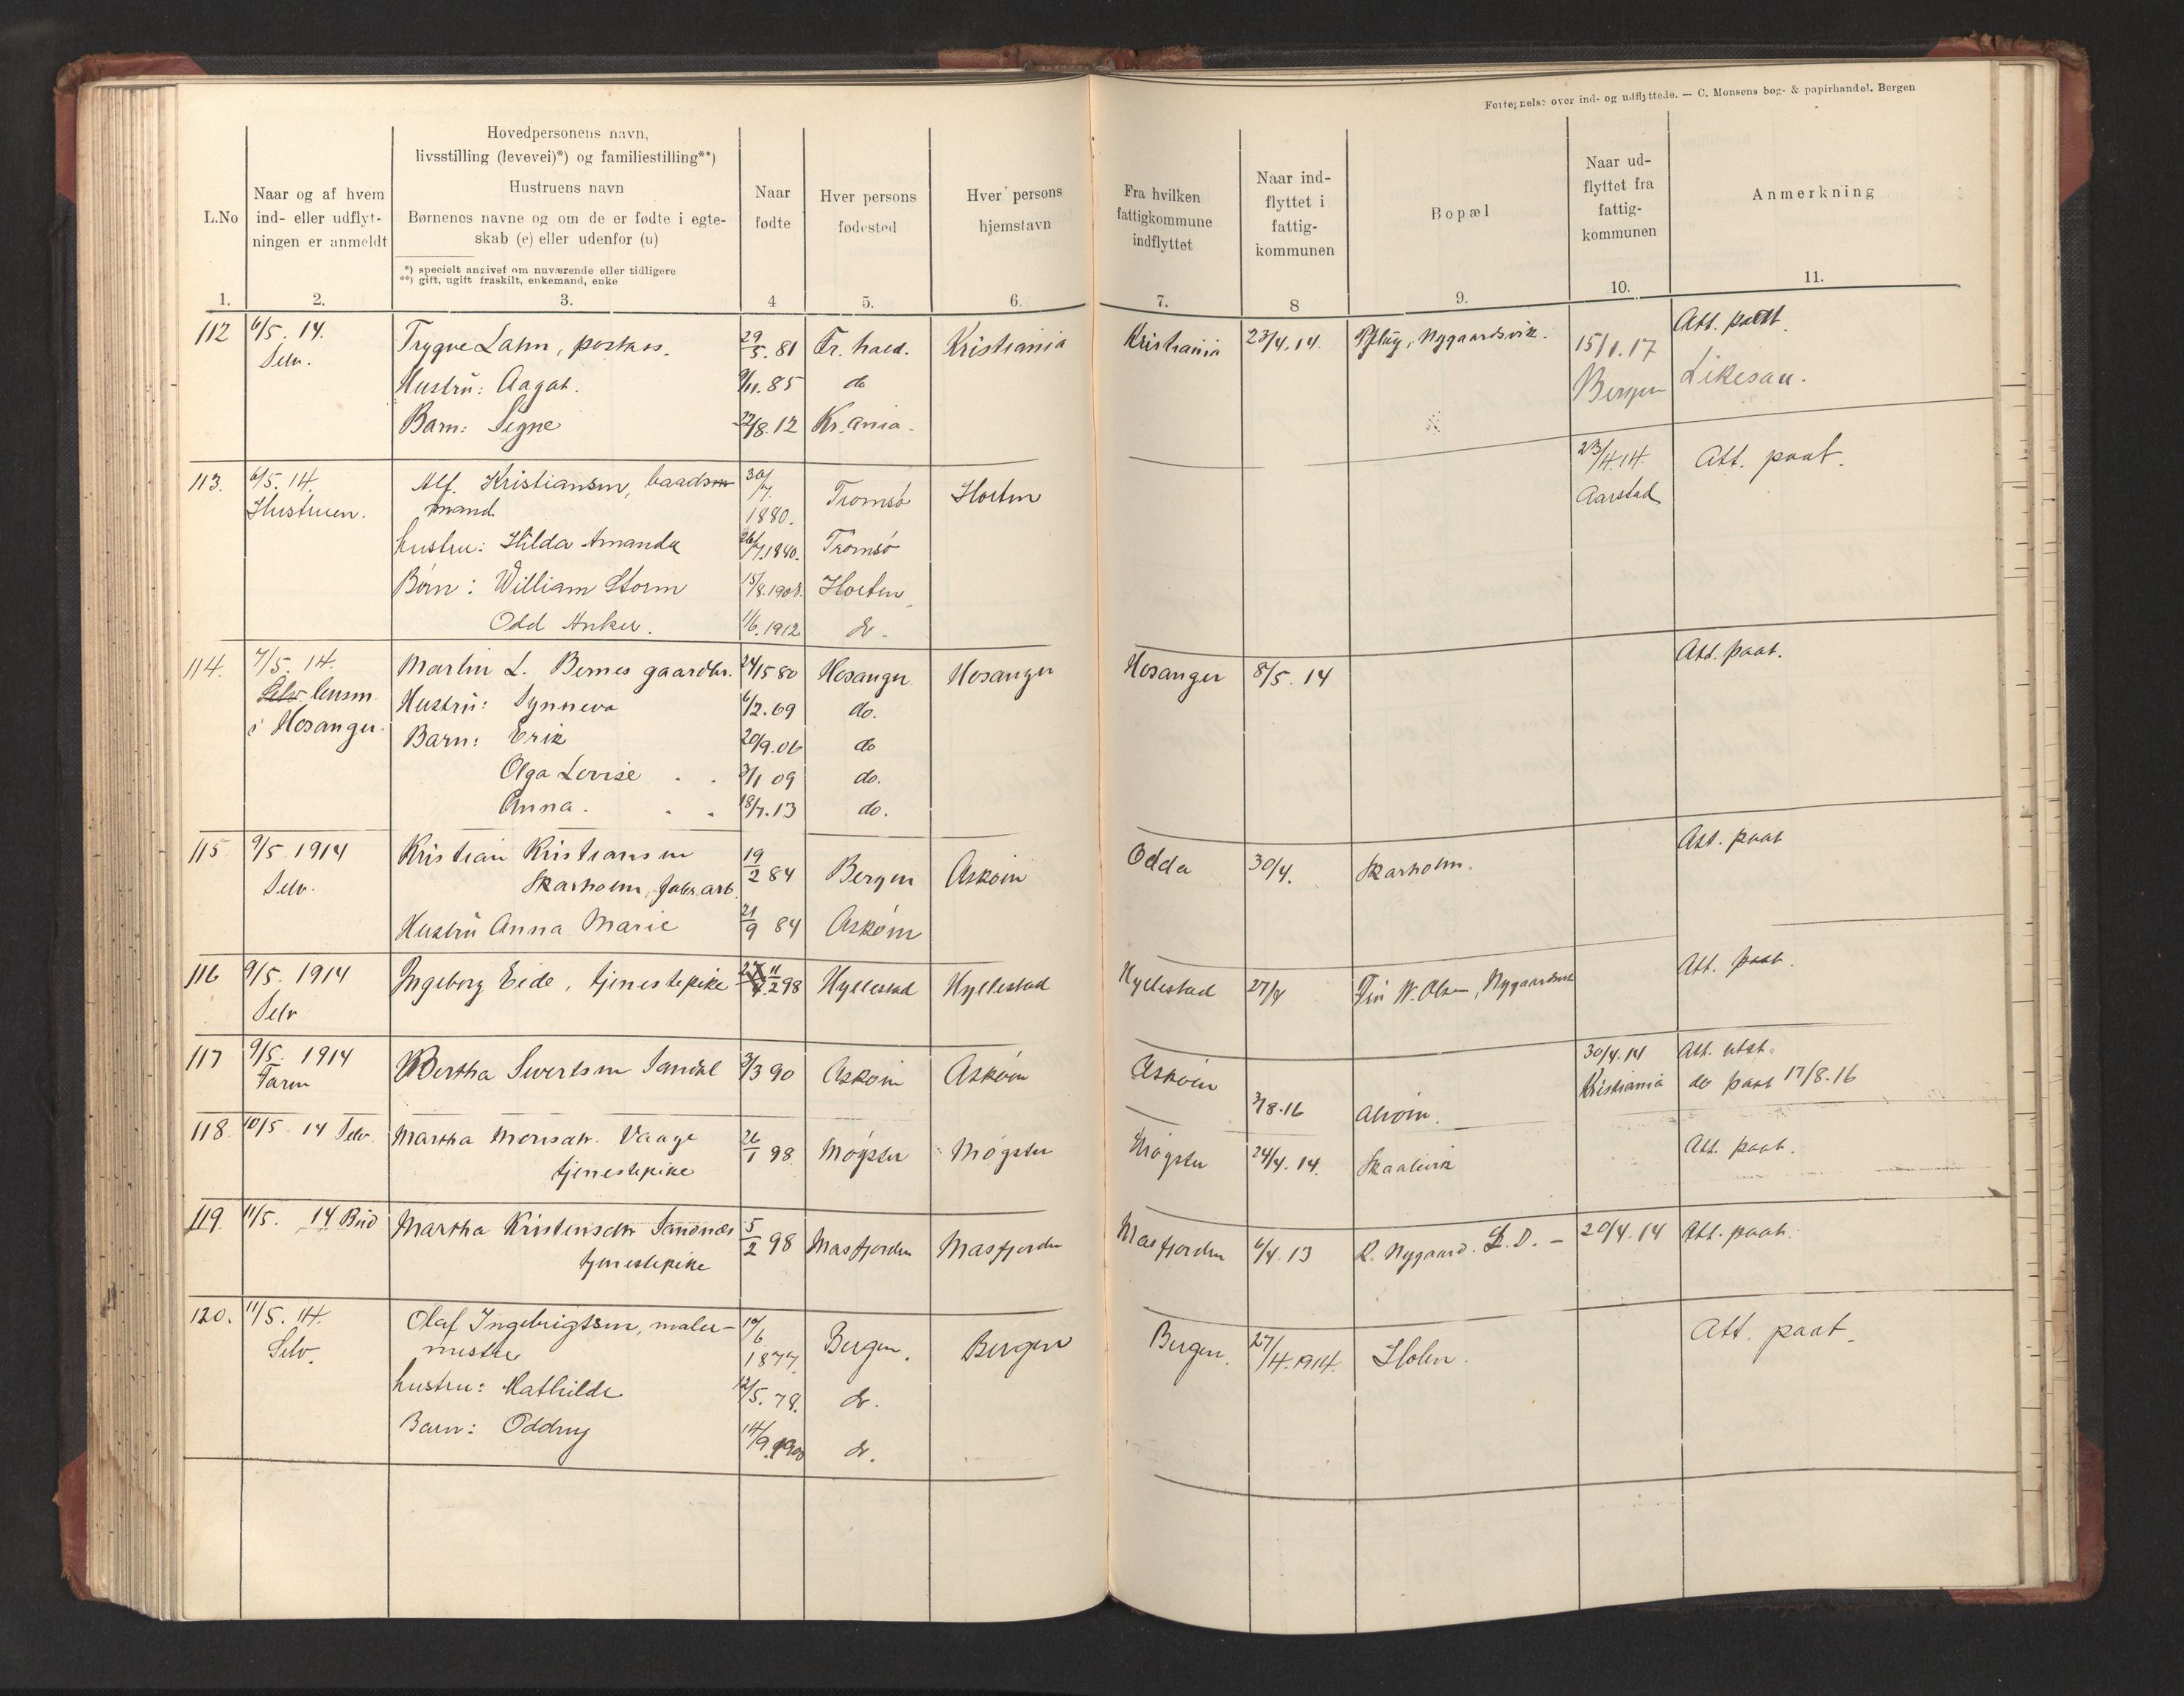 Fortegnelse over ind- og udflyttede. — C. Monsens bog- & papirhandel. Bergen
L.No
Naar og af hvem
ind- eller udflyt-
ningen er anmeldt
Hovedpersonens navn,
livsstilling (levevei)*) og familiestilling**)
Hustruens navn
Børnenes navne og om de er fødte i egte-
skab (e) eller udenfor (u)
*) specielt angivet om nuværende eller tidligere
**) gift, ugift fraskilt, enkemand, enke
Naar
fødte
Hver persons
fødested
Hver persons
hjemstavn
Fra hvilken
fattigkommune
indflyttet
Naar ind-
flyttet i
fattig-
kommunen
Bopæl
Naar ud-
flyttet fra
fattig-
kommunen
Anmerkning
1. 2. 3. 4 5. 6. 7. 8 9. 10. 11.
112 6/5. 14. Trygve Lahn, 29/5. 81 Fr. hald. Kristiania Kristiania 23/4. 14. Pflüg, Nygaardsvik. 15/1. 17 Att. paat.
Selv. Hustrü: Aagot. 9/11. 85 do Bergen Likesaa.
Barn: Signe 22/8. 12 Kr.ania.
113. 6/5. 14. Alf. Kristiansen, baads- 30/7. 1880. Tromsø Horten 23/4. 14. Att. paat.
Hustruen. mand Aarstad
hustru: Hilda Amanda 26/7. 1880. Tromsø
Børn: William Storm 15/8. 1908. Horten
Odd Anker. 1/6. 1912 do.
114. 7/5. 14. Martin L. Bernes gaardbr. 24/5 80 Hosanger Hosanger Hosanger 8/5. 14 Att. paat.
Selv lensm. Hustrü: Synneva 6/2. 69 do.
i Hosanger. Barn: Erik 20/9. 06 do
Olga Lovise 3/1 09 do.
Anna. 18/7. 13 do.
115 9/5. 1914 Kristian Kristiansen 19/2 84 Bergen Askøin Odda 30/4. Skarholm. Att. paat
Selv. Skarholm, fabr.arb.
Hustrü Anna Marie 21/9 84 Askøin
116 9/5. 1914 Ingeborg Eide, tjenestepike 11/2 98 Hyllestad Hyllestad Hyllestad 27/4 W. Olsen, Nygaardsvik Att. paat.
Selv
117 9/5. 1914 Bertha Sivertsen Sandal 3/3 90 Askøin Askøin Askøin 30/4. 14 Att. utst.
Farm 3/8. 16 Alvøin. Kristiania do paat 17/8. 16
118. 10/5. 14 Selv. Martha Monsdtr. Vaage 26/1 98. Møgster Møgster Møgster 24/4. 14. Skaalevik Att. paat.
tjenestepike
119. 11/5. 14 Bud Martha Kristensdtr Sandnæs 5/2 98 Masfjorden Masfjorden Masfjorden 6/4. 13 R. Nygaard. L. D. — 20/4. 14 Att. paat.
tjenestepike
120. 11/5. 14. Olaf Ingebrigtsen, maler- 10/6 1877. Bergen. Bergen Bergen. 27/4. 1914. Holen. Att. paat.
Selv. mester
hustru: Mathilde 12/5. 78. do.
Barn: Oddny 14/9. 1900 do.